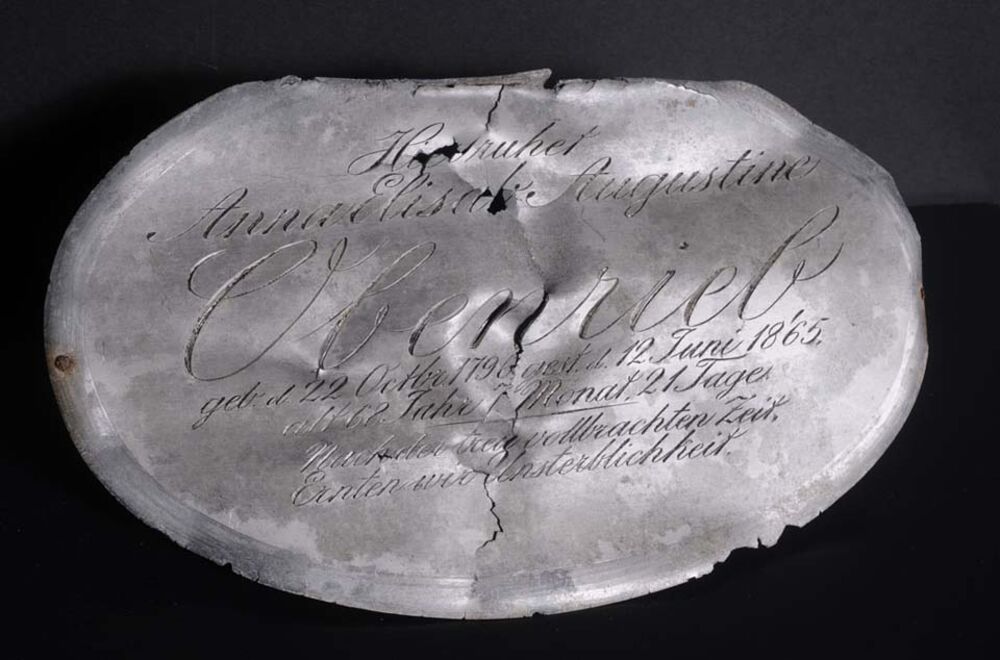 Hier ruhet
Anna Elisab. Augustine
Obenrieb
geb. d. 22 Octbr. 1796 gest. d. 12. Juni 1865.
alt 68 Jahr 7 Monat. 21 Tage.
Nach der treu vollbrachten Zeit,
Ernten wir Unsterblichkeit.